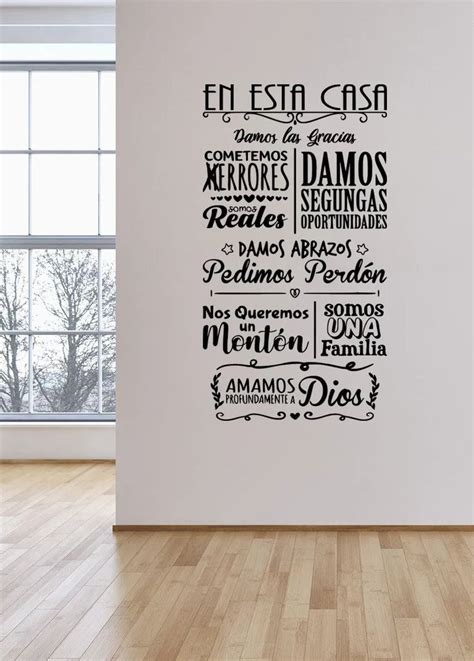 EN ESTA CASA
Damos las Gracias
COMETEMOS
XERRORES
somos
Reales
DAMOS
SEGUNGAS
OPORTUNIDADES
DAMOS ABRAZOS
Pedimos Perdón
Nos Queremos
un
Montón
somos
UNA
Familia
AMAMOS
PROFUNDAMENTE A
Dios